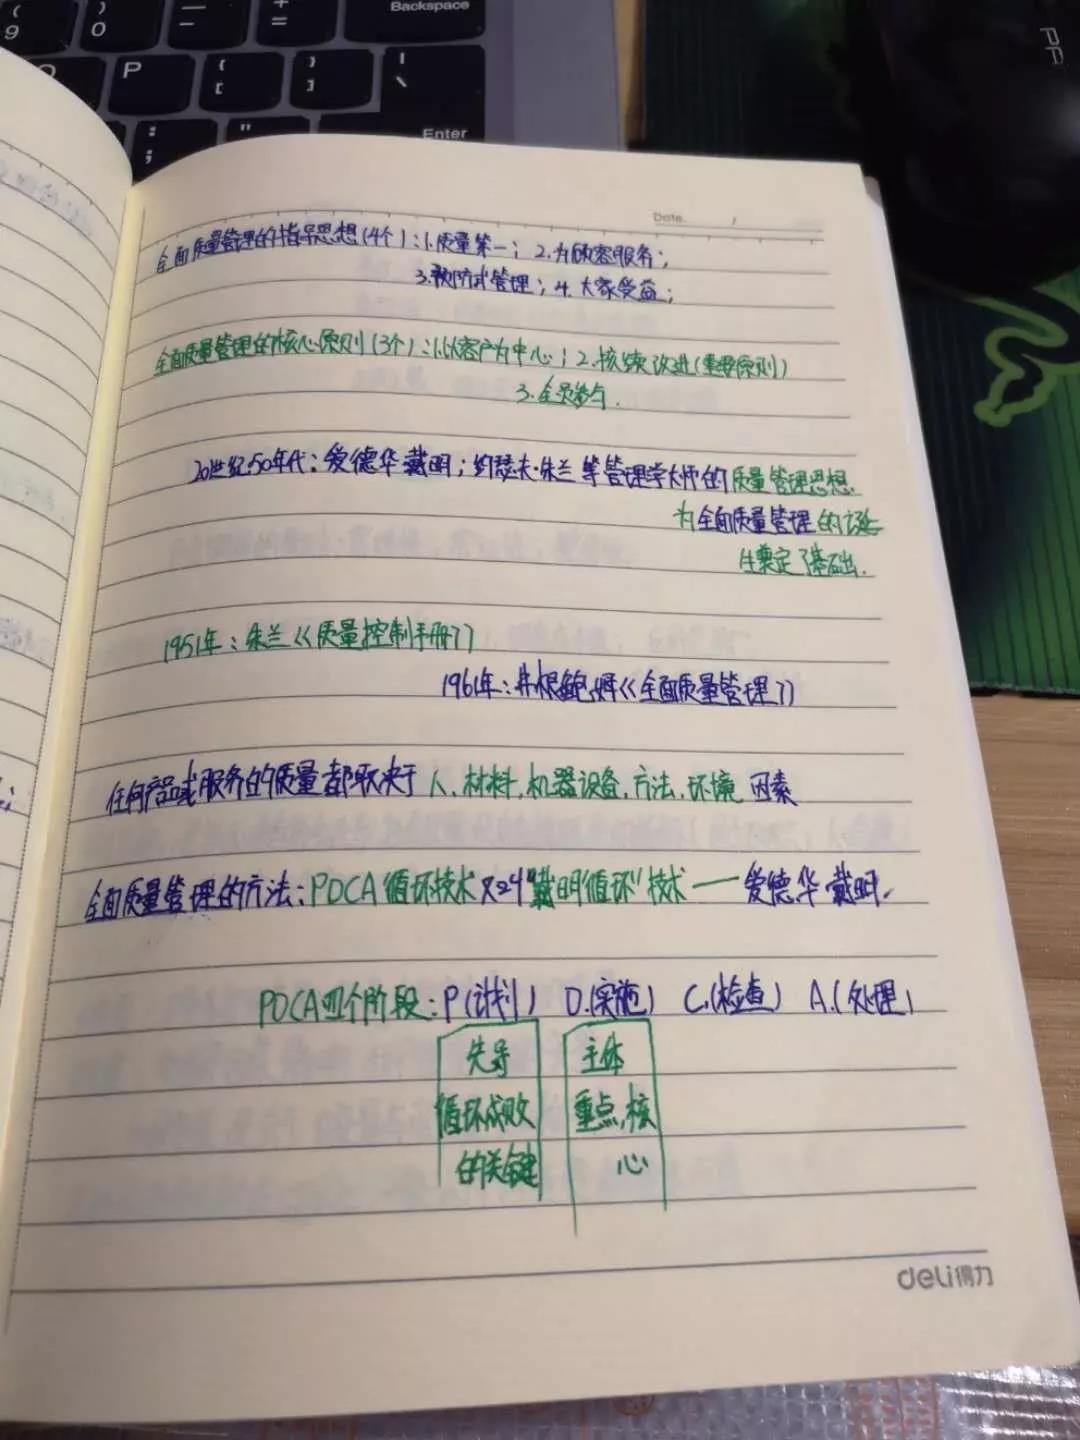 (
9
)
0
_
—
+
=
Backspace
P
{
[
}
]
|
\
:
;
"
Enter
Date. /
全面质量管理的指导思想(4个):1.质量第一;2.为顾客服务;
3.预防式管理;4.大家受益;
全面质量管理的核心原则(3个):1.以客户为中心;2.持续改进(重要原则)
3.全员参与.
20世纪50年代:爱德华戴明;约瑟夫·朱兰等管理学大师的质量管理思想.
为全面质量管理的诞
生奠定了基础.
1951年:朱兰《质量控制手册》
1961年:《全面质量管理》
任何产品或服务的质量都取决于人.材料.机器设备.方法.环境 因素
全面质量管理的方法:PDCA循环技术又叫"戴明循环"技术——爱德华戴明.
PDCA四个阶段:P(计划) D.(实施) C.(检查) A.(处理)
先导
循环成败
的关键
主体
重点,核
心
deli得力